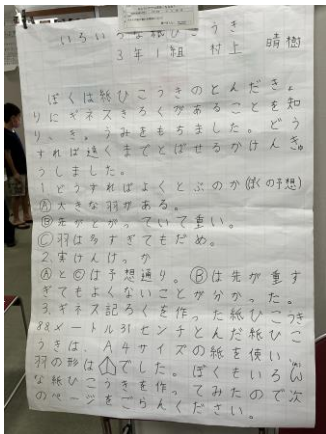 いろいろな紙ひこうき
3年1組 村上 晴樹
ぼくは紙ひこうきのとんだき
りにギネスきろくがあることを知
り、き。うみをもちました。どう
すれば遠くまでとばせるかけんきゅ
うしました。
1どうすればよくとぶのか(ぼくの予想)
Ⓐ大きな羽がある。
Ⓑ先がとがっていて重い。
Ⓒ羽は多すぎてもだめ。
2.実けんけっか
ⒶとⒸは予想通り。Ⓑは先が重す
ぎてもよくないことが分かった。
3.ギネス記ろくを作った紙ひこうき
88メートル31センチとんだ紙ひこ
うきは、A4サイズの紙を使い
羽の形はでした。ぼくもいろん
な紙ひこうきを作ってみたので次
のページをごらんください。